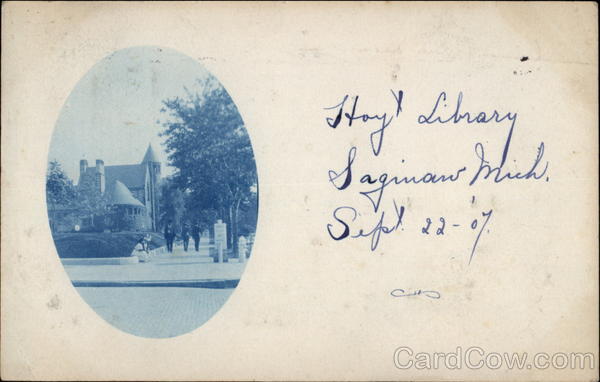 Hoyt Library
Saginaw Mich.
Sept. 22-'07.
CardCow.com